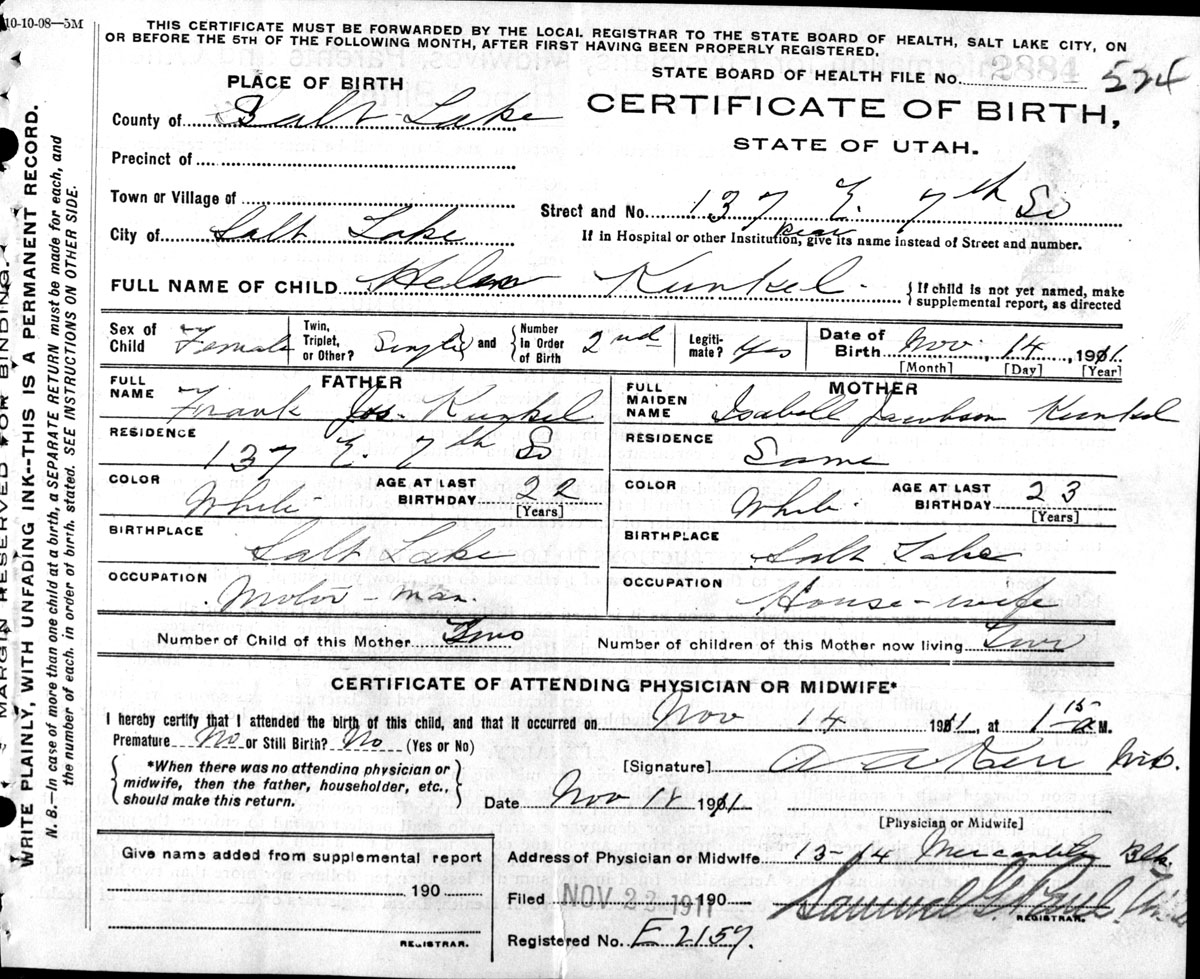 10-10-08—5M
THIS CERTIFICATE MUST BE FORWARDED BY THE LOCAL REGISTRAR TO THE STATE BOARD OF HEALTH, SALT LAKE CITY, ON
OR BEFORE THE 5TH OF THE FOLLOWING MONTH, AFTER FIRST HAVING BEEN PROPERLY REGISTERED.
STATE BOARD OF HEALTH FILE No. 2884 524
PLACE OF BIRTH
CERTIFICATE OF BIRTH,
STATE OF UTAH.
County of Salt Lake
Precinct of
Town or Village of
Street and No. 137 E. 7th So
rear
City of Salt Lake
If in Hospital or other Institution, give its name instead of Street and number.
FULL NAME OF CHILD Helen Kunkel.
{ If child is not yet named, make
supplemental report, as directed
Sex of Child Female
Twin, Triplet, or Other? Single } and { Number In Order of Birth 2nd
Legitimate? Yes
Date of Birth Nov. 14, 1911
[Month] [Day] [Year]
FATHER
FULL NAME Frank Jos. Kunkel
RESIDENCE 137 E 7th So
COLOR White
AGE AT LAST BIRTHDAY 22
[Years]
BIRTHPLACE Salt Lake
OCCUPATION Motor-man.
MOTHER
FULL MAIDEN NAME Isabell Jacobson Kunkel
RESIDENCE Same
COLOR White.
AGE AT LAST BIRTHDAY 23
[Years]
BIRTHPLACE Salt Lake
OCCUPATION House-wife
Number of Child of this Mother Two
Number of children of this Mother now living Two
CERTIFICATE OF ATTENDING PHYSICIAN OR MIDWIFE*
I hereby certify that I attended the birth of this child, and that it occurred on Nov 14 1911, at 1 15 a M.
Premature No or Still Birth? No (Yes or No)
{ *When there was no attending physician or
midwife, then the father, householder, etc.,
should make this return. }
[Signature] A A Kerr M.D.
Date Nov 14 1911
[Physician or Midwife]
Give name added from supplemental report
190
REGISTRAR.
Address of Physician or Midwife 13-14 Mercantile Blk.
Filed NOV 23 1911 190
Samuel G. Paul
REGISTRAR.
Registered No. E 2157.
MARGIN RESERVED FOR BINDING.
WRITE PLAINLY, WITH UNFADING INK--THIS IS A PERMANENT RECORD.
N. B.—In case of more than one child at a birth, a SEPARATE RETURN must be made for each, and
the number of each, in order of birth, stated. SEE INSTRUCTIONS ON OTHER SIDE.